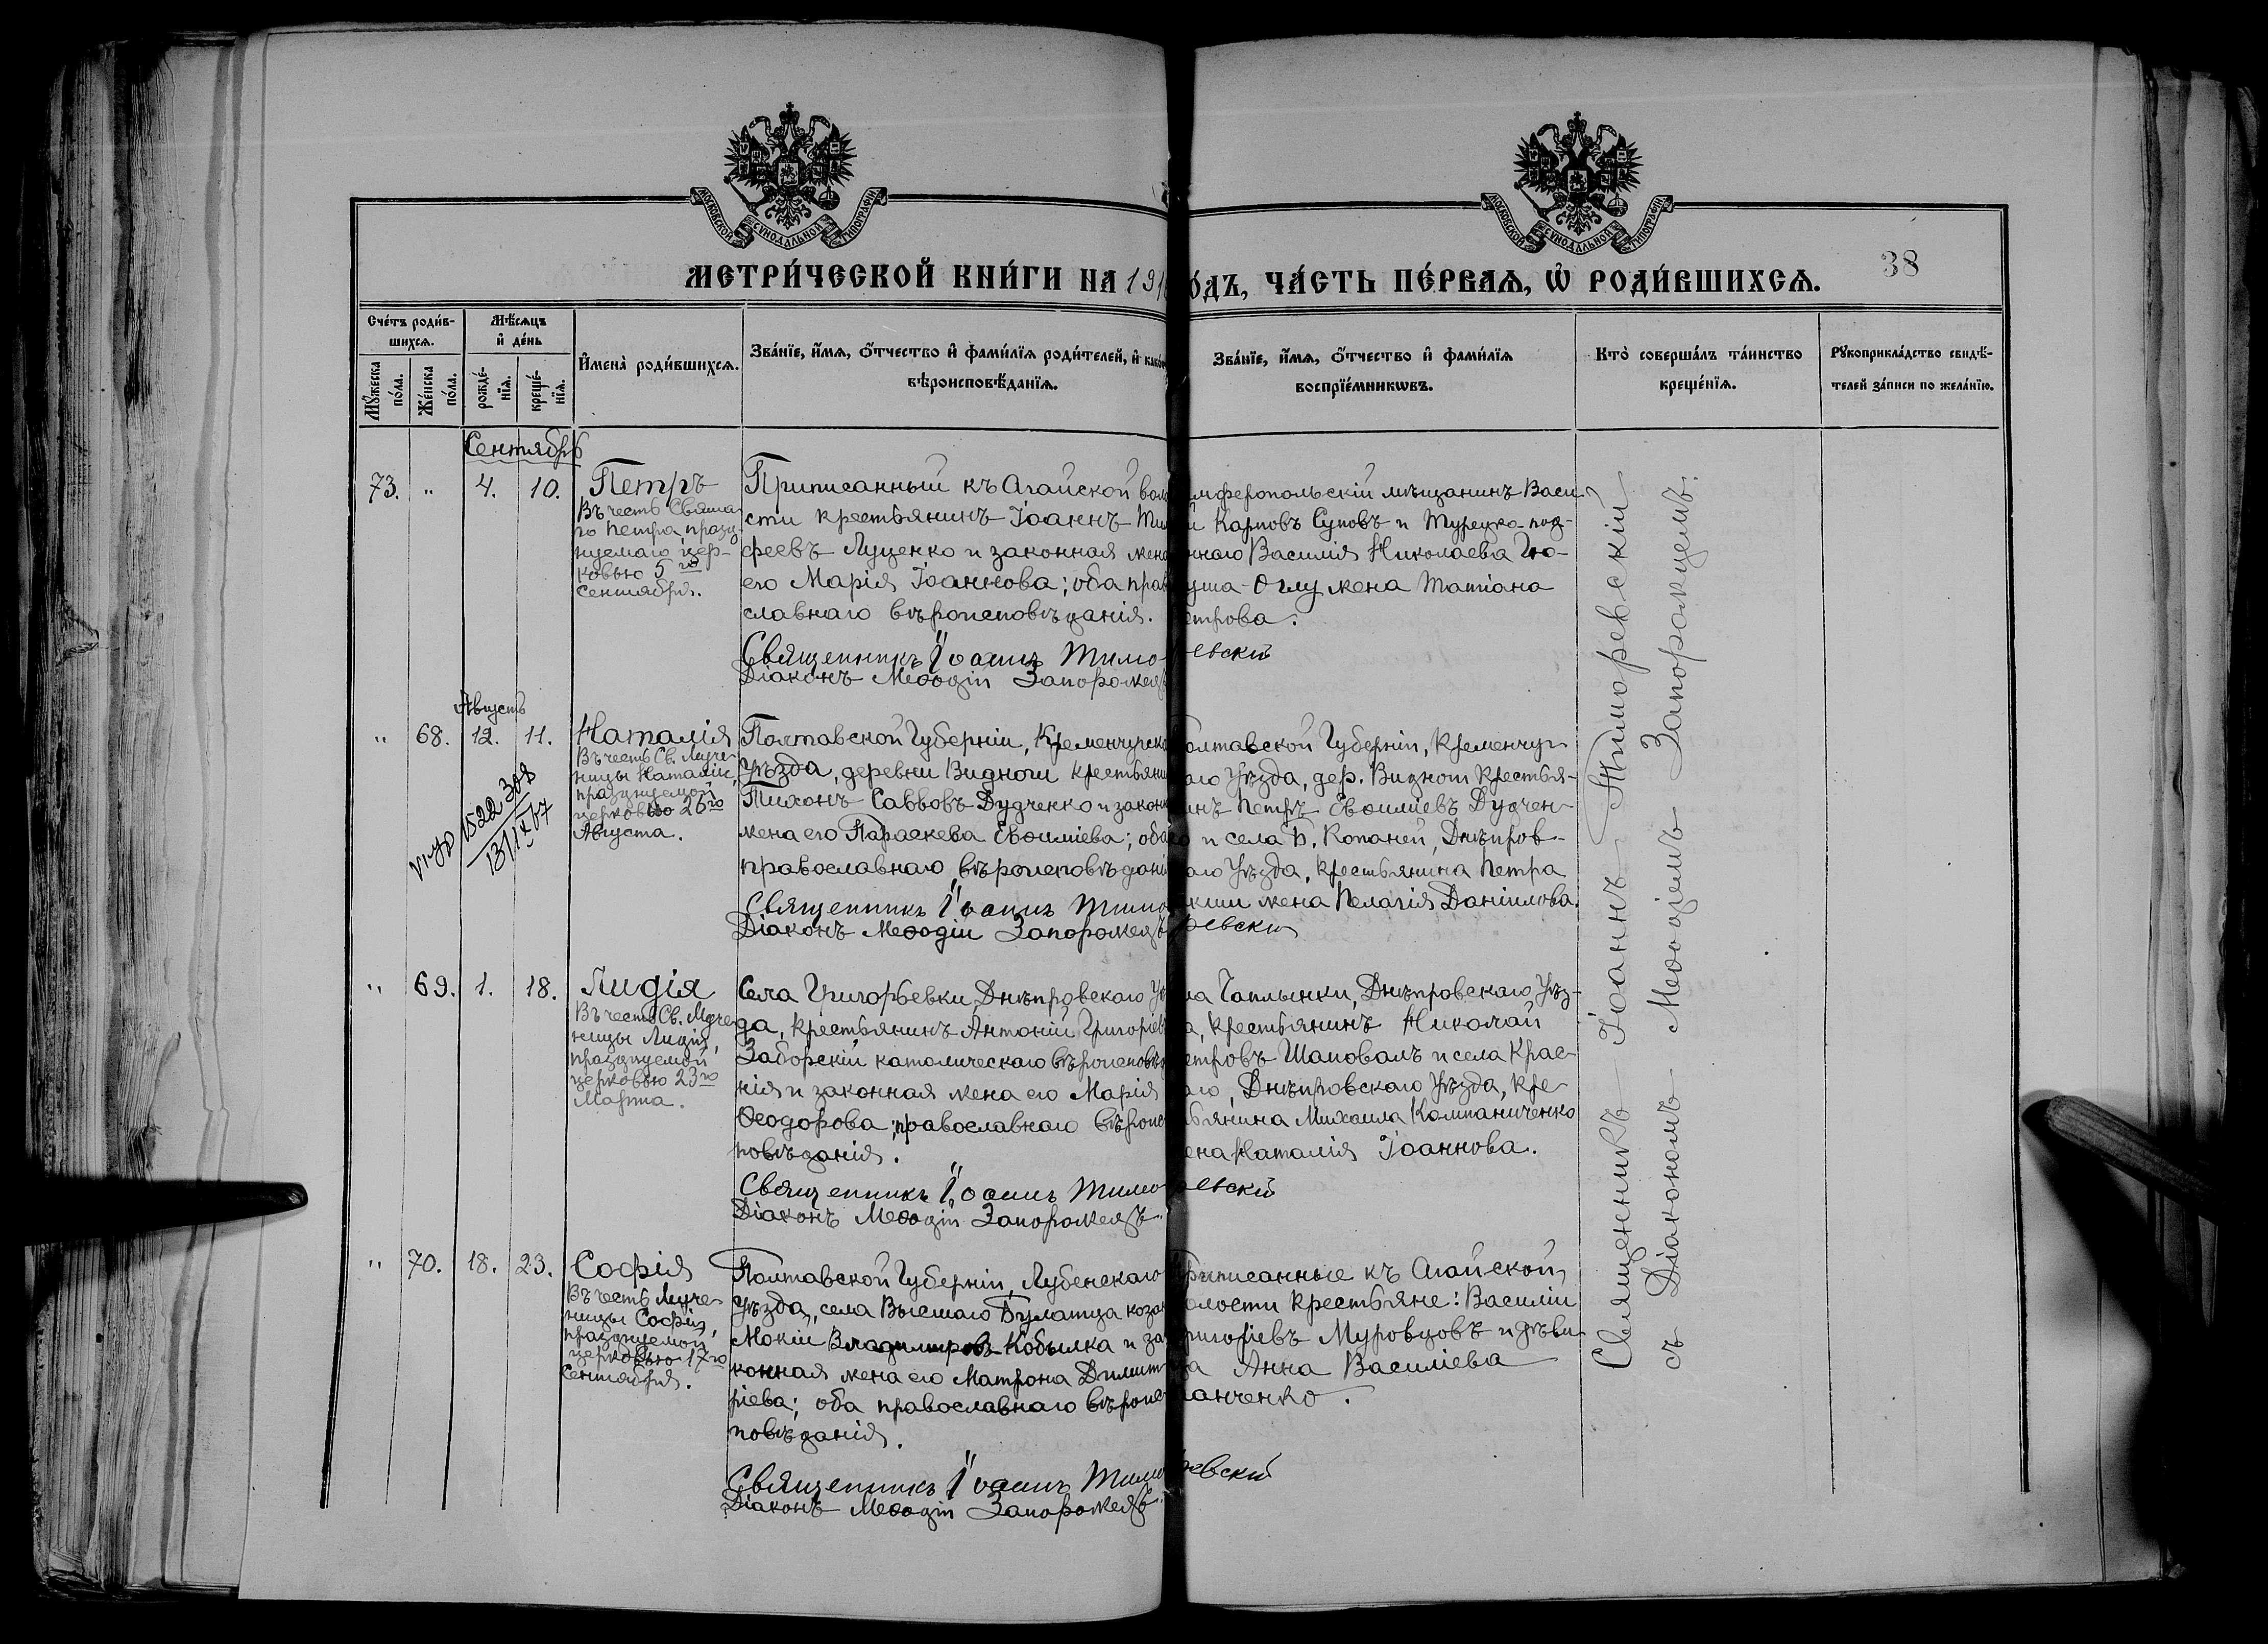 МОСКОВСКОЙ СУНОДАЛЬНОЙ ТИПОГРАФІИ
МОСКОВСКОЙ СУНОДАЛЬНОЙ ТИПОГРАФІИ
38
МЕТРИ́ЧЕСКОЙ КНИ́ГИ НА 191
О́ДЪ, ЧА́СТЬ ПЕ́РВАѦ, Ѡ҆ РОДИ́ВШИХСѦ.
Сче́тъ роди́в-
шихсѧ.
Мѣ́сѧцъ
и҆ де́нь
Мꙋ́жеска по́ла.
Же́нска по́ла.
рожде́-нїѧ.
креще́-нїѧ.
И҆мена̀ роди́вшихсѧ.
Зва́нїе, и҆́мѧ, ѻ҆́тчество и҆ фами́лїѧ роди́телей, и҆
вѣроисповѣ́данїѧ.
Зва́нїе, и҆́мѧ, ѻ҆́тчество и҆ фами́лїѧ
воспрїе́мникѡвъ.
Кто̀ соверша́лъ та́инство
креще́нїѧ.
Рꙋкоприкла́дство свидѣ́-
телей за́писи по жела́нїю.
Сентябрь
73. " 4. 10. Петръ
Въ честь Свята-
го Петра, празд-
нуемаго цер-
ковью 5го
Сентября.
Приписанный къ Агайской воло
сти крестьянинъ Іоаннъ Ти
феевъ Луценко и законная жена
его Марія Іоаннова; оба прав
славнаго вѣроисповѣданія.
Священникъ Іоаннъ Тимо евскій
Діаконъ Меѳодій Запорожецъ
мферопольскій мѣщанинъ Васи-
й Карповъ Суповъ и Турецко-под-
ннаго Василія Николаева Гю-
уша-Оглу жена Татіана
етрова.
Августъ
" 68. 12. 11. Наталія
Въ честь Св. Муче-
ницы Наталіи,
празднуемой
церковью 26го
Августа.
1522 308
13/IX 67
Полтавской Губерніи, Кременчугска
Уѣзда, деревни Видной крестьяни
Тихонъ Саввовъ Дудченко и законн
жена его Параскева Евѳиміева; оба
православнаго вѣроисповѣдані
Священникъ Іоаннъ Тимо
Діаконъ Меѳодій Запорожецъ евскій
олтавской Губерніи, Кременчуг-
аго Уѣзда, дер. Видной Крестья-
инъ Петръ Евѳиміевъ Дудчен-
ко и села Б. Копаней, Днѣпров-
аго Уѣзда, крестьянина Петра
жена Пелагія Даніилова.
" 69. 1. 18. Лидія
Въ честь Св. Муче-
ницы Лидіи,
празднуемой
церковью 23го
Марта.
Села Григорьевки, Днѣпровскаго Уѣ
да, крестьянинъ Антоній Григорьев
Заборскій католическаго вѣроисповѣ
нія и законная жена его Марія
Ѳеодорова; православнаго вѣроис
повѣданія.
Священникъ Іоаннъ Тимо евскій
Діаконъ Меѳодій Запорожецъ
ла Чаплынки, Днѣпровскаго Уѣз-
а, крестьянинъ Николай
етровъ Шаповалъ и села Крас-
аго, Днѣпровскаго Уѣзда, кре-
ьянина Михаила Компаниченко
ена Наталія Іоаннова.
" 70. 18. 23. Софія
Въ честь Муче-
ницы Софіи,
празднуемой
церковью 17го
Сентября.
Полтавской Губерніи, Лубенскаго
Уѣзда, села Высшаго Булатца козак
Мокій Владимировъ Кобылка и за
конная жена его Матрона Димит
ріева; оба православнаго вѣроис
повѣданія.
Священникъ Іоаннъ Тимо евскій
Діаконъ Меѳодій Запорожецъ
риписанные къ Агайской
олости крестьяне: Василій
ригоріевъ Муровцовъ и дѣви-
ца Анна Василіева
анченко.
Священникъ Іоаннъ Тиморевскій
съ Діакономъ Меѳодіемъ Запорожцемъ.